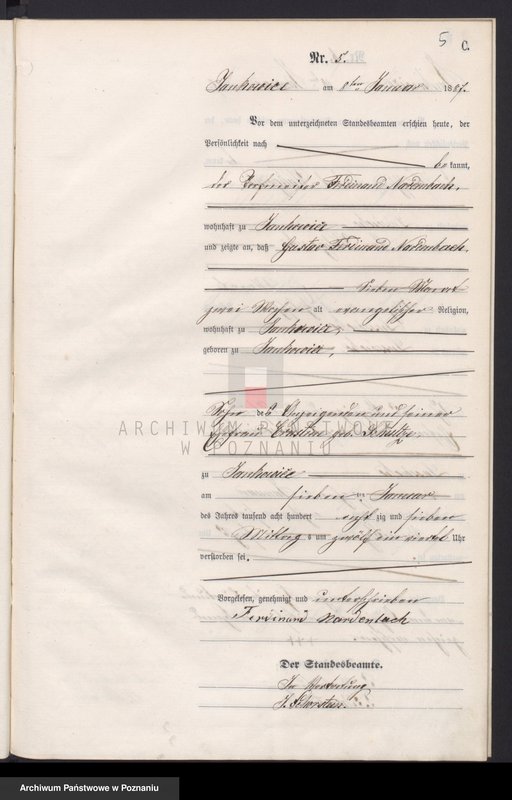 5 C.
Nr. 5.
Jankowice am 8ten Januar 1887.
Vor dem unterzeichneten Standesbeamten erschien heute, der
Persönlichkeit nach
bekannt,
der Ferdinand Nardenbach,
wohnhaft zu Jankowice
und zeigte an, daß Gustav Ferdinand Nardenbach,
sieben Monat
zwei Wochen alt evangelischer Religion,
wohnhaft zu Jankowice,
geboren zu Jankowice,
Sohn des Anzeigenden und seiner
Ehefrau Ernstine geb. Schultz
ARCHIWUM PAŃSTWOWE
W POZNANIU
zu Jankowice
am sieben ten Januar
des Jahres tausend acht hundert acht zig und sieben
Mittags um zwölf ein viertel Uhr
verstorben sei.
Vorgelesen, genehmigt und unterschrieben
Ferdinand Nardenbach
Der Standesbeamte.
In Vertretung
Archiwum Państwowe w Poznaniu